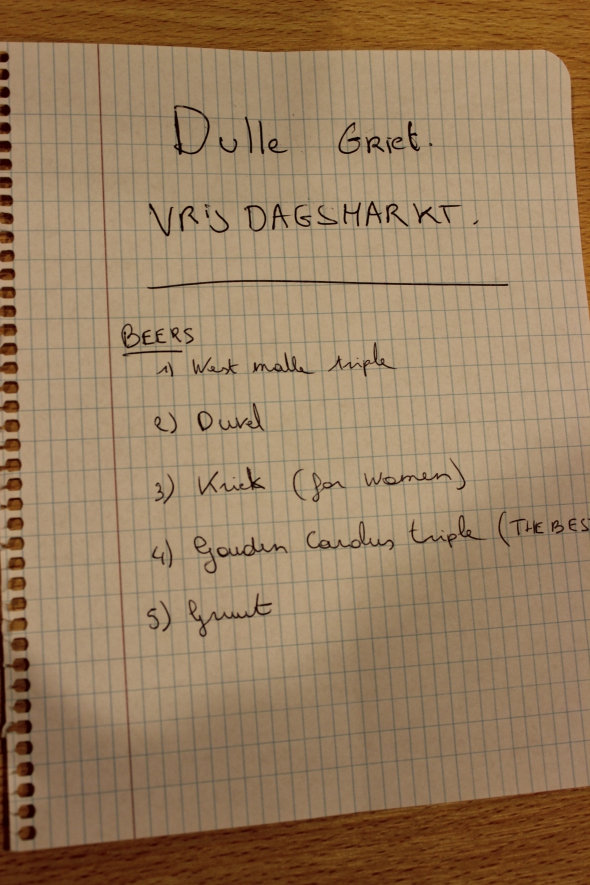 Dulle Griet.
VRijDAGSMARKT.
BEERS
1) West malle triple
2) Duvel
3) Kriek (for women)
4) Gouden Carolus triple (THE BES
5) Gruut